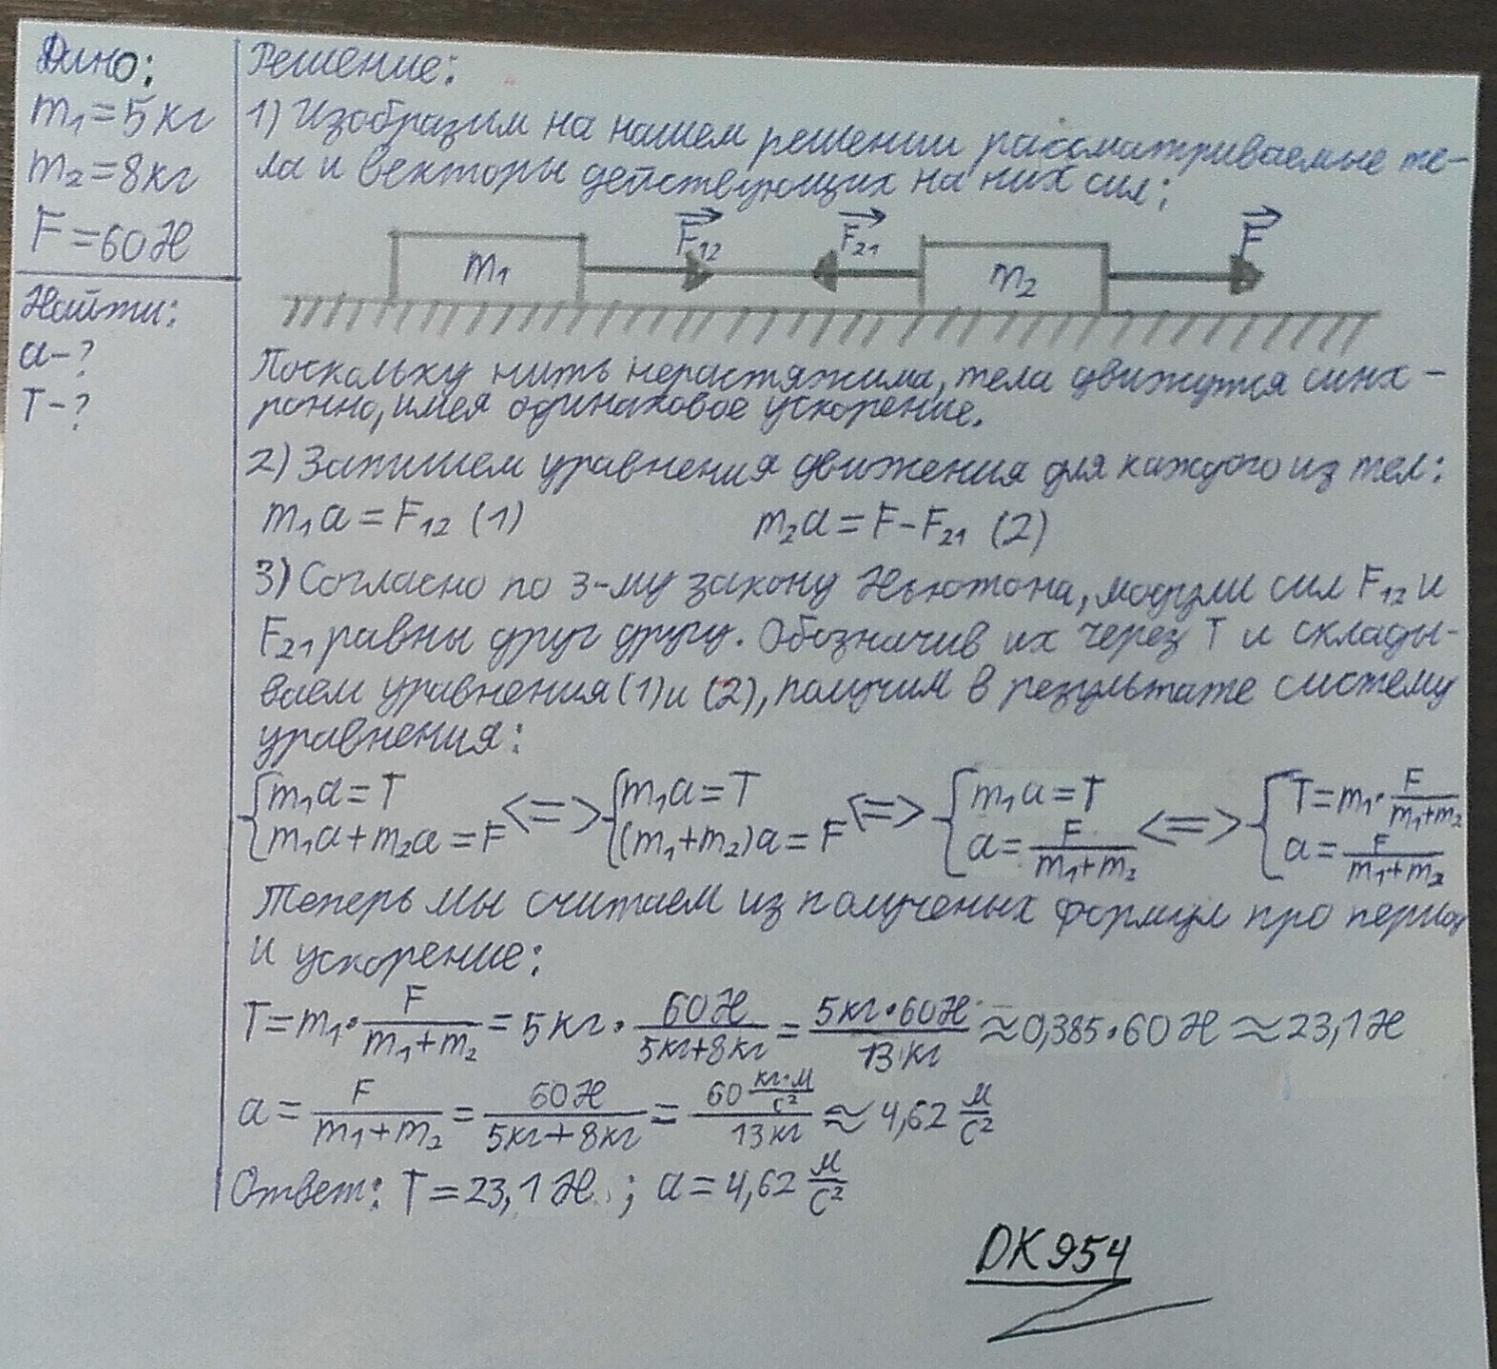 Дано:
m₁=5кг
m₂=8кг
F=60Н
Найти:
a-?
T-?
Решение:
1) Изобразим на нашем решении рассматриваемые те-
ла и векторы действующих на них сил:
F₁₂ F₂₁ F
m₁ m₂
Поскольку нить нерастяжима, тела движутся синх-
ронно, имея одинаковое ускорение.
2) Запишем уравнения движения для каждого из тел:
m₁a=F₁₂ (1) m₂a=F-F₂₁ (2)
3) Согласно по 3-му закону Ньютона, модули сил F₁₂ и
F₂₁ равны друг другу. Обозначив их через T и склады-
ваем уравнения (1) и (2), получим в результате систему
уравнения:
{m₁a=T <=> {m₁a=T <=> {m₁a=T <=> {T=m₁·F/(m₁+m₂)
{m₁a+m₂a=F {(m₁+m₂)a=F {a=F/(m₁+m₂) {a=F/(m₁+m₂)
Теперь мы считаем из полученых формул про
и ускорение:
T=m₁·F/(m₁+m₂)=5кг·60Н/(5кг+8кг)=5кг·60Н/13кг≈0,385·60Н≈23,1Н
a=F/(m₁+m₂)=60Н/(5кг+8кг)=60 кг·м/с²/13кг≈4,62 м/с²
Ответ: T=23,1Н; a=4,62 м/с²
DK954